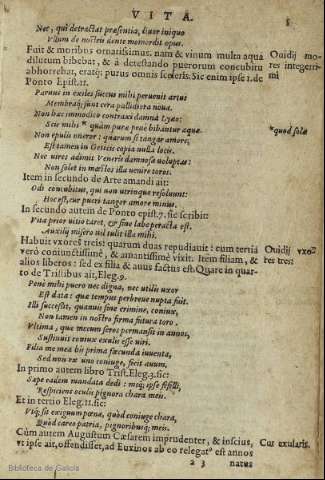 VITA. 5
Nec, qui detractat præsentia, liuor iniquo
Vllum de nostris dente momordit opus.
Fuit & moribus ornatissimus. nam & vinum multa aqua
dilutum bibebat, & à detestando puerorum concubitu
abhorrebat, eratq; purus omnis sceleris. Sic enim ipse 1. de
Ponto Epist. 11.
Ouidij mores integerrimi
Paruus in exiles succus mihi peruenit artus
Membraq; sunt cera pallidiora noua.
Non hæc immodico contraxi damna Lyæo:
Scis mihi * quàm puræ penè bibantur aquæ.
*quod solæ
Non epulis oneror: quarum si tangar amore,
Est tamen in Geticis copia nulla locis.
Nec vires adimit Veneris damnosa voluptas:
Non solet in mœstos illa venire toros.
Item in secundo de Arte amandi ait:
Odi concubitus, qui non vtrinque resoluunt:
Hoc est, cur pueri tangar amore minus.
In secundo autem de Ponto epist. 7. sic scribit:
Vita prior vitio caret, & sine labe peracta est.
Auxilij misero nil tulit illa mihi.
Habuit vxores treis: quarum duas repudiauit: cum tertia
verò coniunctissimè, & amantissimè vixit. Item filiam, &
alios liberos: sed ex filia & auus factus est. Quare in quarto
de Tristibus ait, Eleg. 9.
Ouidij vxores tres
Penè mihi puero nec digna, nec vtilis vxor
Est data: quæ tempus perbreue nupta fuit.
Illi successit, quamuis sine crimine, coniux,
Non tamen in nostro firma futura toro.
Vltima, quæ mecum seros permansit in annos,
Sustinuit coniux exulis esse viri.
Filia me mea bis prima fœcunda iuuenta,
Sed non ex vno coniuge, fecit auum.
In primo autem libro Trist. Eleg. 3. sic:
Sæpe eadem mandata dedi: meq; ipse fefelli,
Respiciens oculis pignora chara meis.
Et in tertio Eleg. 11. sic:
Vtq; sit exiguum pœnæ, quòd coniuge chara,
Quòd careo patria, pignoribusq; meis.
Cùm autem Augustum Cæsarem imprudenter, & inscius,
vt ipse ait, offendisset, ad Euxinos ab eo relegatº est annos
Cur exularis.
a 3 natus
Biblioteca de Galicia